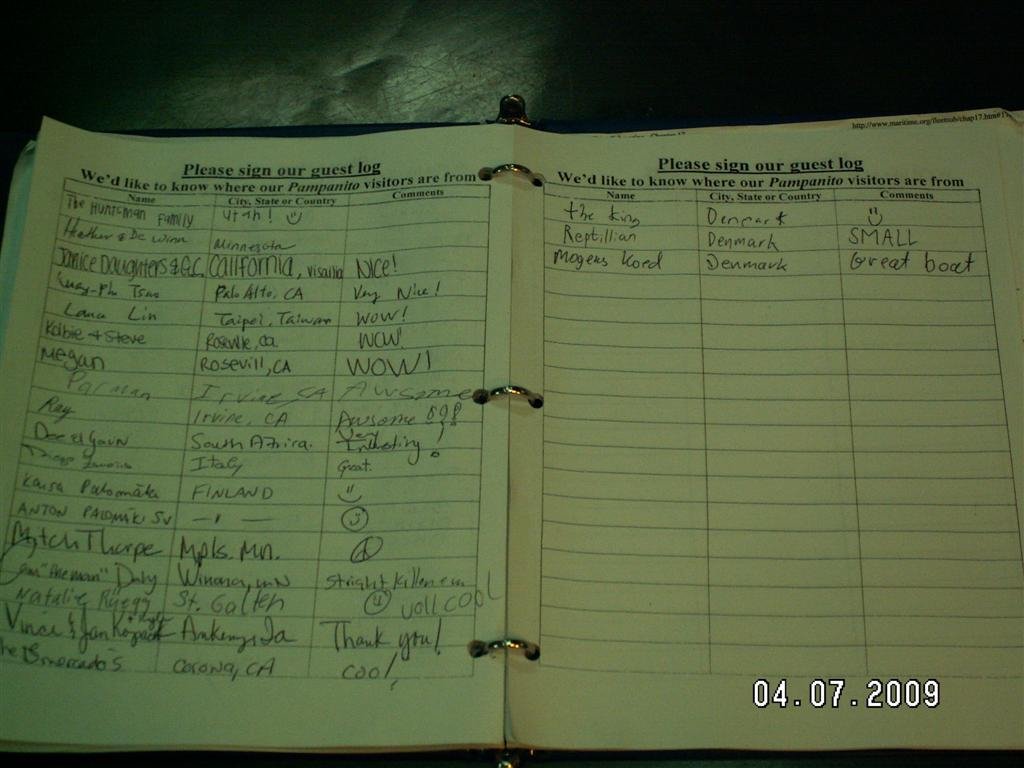 http://www.maritime.org/fleetsub/chap17.htm#17
Please sign our guest log
We'd like to know where our Pampanito visitors are from
Name City, State or Country Comments
The Huntsman Family Utah!
Heather & De Winn Minnesota
Janice Daughters & G.C. California, visalia NICE!
Palo Alto, CA Very Nice!
Lana Lin Taipei, Taiwan WOW!
Kolbie + Steve Roseville, Ca WOW!
Megan ROSEVILL, CA WOW!
Parman Irvine, CA AWSOME
Ray Irvine, CA Awsome !!!
South Africa. Very Intresting!
Italy Great.
Kaisa Palomäki FINLAND
ANTON PALOMÄKI SV — " —
Mitch Thorpe Mpls. Mn.
"the man" Daly Winona, MN stright killen em
Natalie Ryegg St. Gallen voll COOL
Vince & Jan Ankeny, Ia Thank you!
Corona, CA cool!
Please sign our guest log
We'd like to know where our Pampanito visitors are from
Name City, State or Country Comments
the King Denmark
Reptillian Denmark SMALL
Mogens Koed Denmark Great boat
04.07.2009